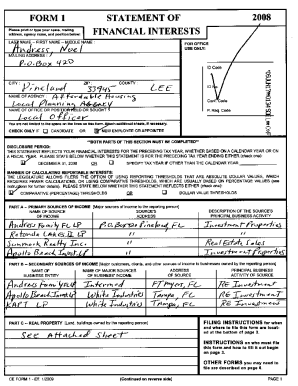 FORM 1 STATEMENT OF 2008
FINANCIAL INTERESTS
Please print or type your name, mailing address, agency name, and position below:
FOR OFFICE USE ONLY:
LAST NAME -- FIRST NAME -- MIDDLE NAME:
Andress, Noel
MAILING ADDRESS:
P.O. Box 420
CITY: ZIP: COUNTY:
Pineland 33945 LEE
NAME OF AGENCY: Affordable Housing
Local Planning Agency
NAME OF OFFICE OR POSITION HELD OR SOUGHT:
Local Officer
You are not limited to the space on the lines on this form. Attach additional sheets, if necessary.
CHECK ONLY IF CANDIDATE OR NEW EMPLOYEE OR APPOINTEE
ID Code
ID No.
Conf. Code
P. Req. Code
**BOTH PARTS OF THIS SECTION MUST BE COMPLETED**
DISCLOSURE PERIOD:
THIS STATEMENT REFLECTS YOUR FINANCIAL INTERESTS FOR THE PRECEDING TAX YEAR, WHETHER BASED ON A CALENDAR YEAR OR ON A FISCAL YEAR. PLEASE STATE BELOW WHETHER THIS STATEMENT IS FOR THE PRECEDING TAX YEAR ENDING EITHER (check one):
DECEMBER 31, 2008 OR SPECIFY TAX YEAR IF OTHER THAN THE CALENDAR YEAR:
MANNER OF CALCULATING REPORTABLE INTERESTS:
THE LEGISLATURE ALLOWS FILERS THE OPTION OF USING REPORTING THRESHOLDS THAT ARE ABSOLUTE DOLLAR VALUES, WHICH REQUIRES FEWER CALCULATIONS, OR USING COMPARATIVE THRESHOLDS, WHICH ARE USUALLY BASED ON PERCENTAGE VALUES (see instructions for further details). PLEASE STATE BELOW WHETHER THIS STATEMENT REFLECTS EITHER (check one):
COMPARATIVE (PERCENTAGE) THRESHOLDS OR DOLLAR VALUE THRESHOLDS
PART A -- PRIMARY SOURCES OF INCOME [Major sources of income to the reporting person]
NAME OF SOURCE OF INCOME SOURCE'S ADDRESS DESCRIPTION OF THE SOURCE'S PRINCIPAL BUSINESS ACTIVITY
Andress Family LP P.O. Box Pineland, FL Investment Properties
LP "
Realty Inc. " Real Estate Sales
Apollo Beach LP " Investment Properties
PART B -- SECONDARY SOURCES OF INCOME [Major customers, clients, and other sources of income to businesses owned by the reporting person]
NAME OF BUSINESS ENTITY NAME OF MAJOR SOURCES OF BUSINESS' INCOME ADDRESS OF SOURCE PRINCIPAL BUSINESS ACTIVITY OF SOURCE
Andress Family LP Intermed Ft Myers, FL RE Investment
Apollo Beach LP White Industries Tampa, FL RE Investment
LP White Industries Tampa, FL RE Investment
PART C -- REAL PROPERTY [Land, buildings owned by the reporting person]
See Attached Sheet
FILING INSTRUCTIONS for when and where to file this form are located at the bottom of page 2.
INSTRUCTIONS on who must file this form and how to fill it out begin on page 3.
OTHER FORMS you may need to file are described on page 6.
CE FORM 1 - Eff. 1/2009 (Continued on reverse side) PAGE 1